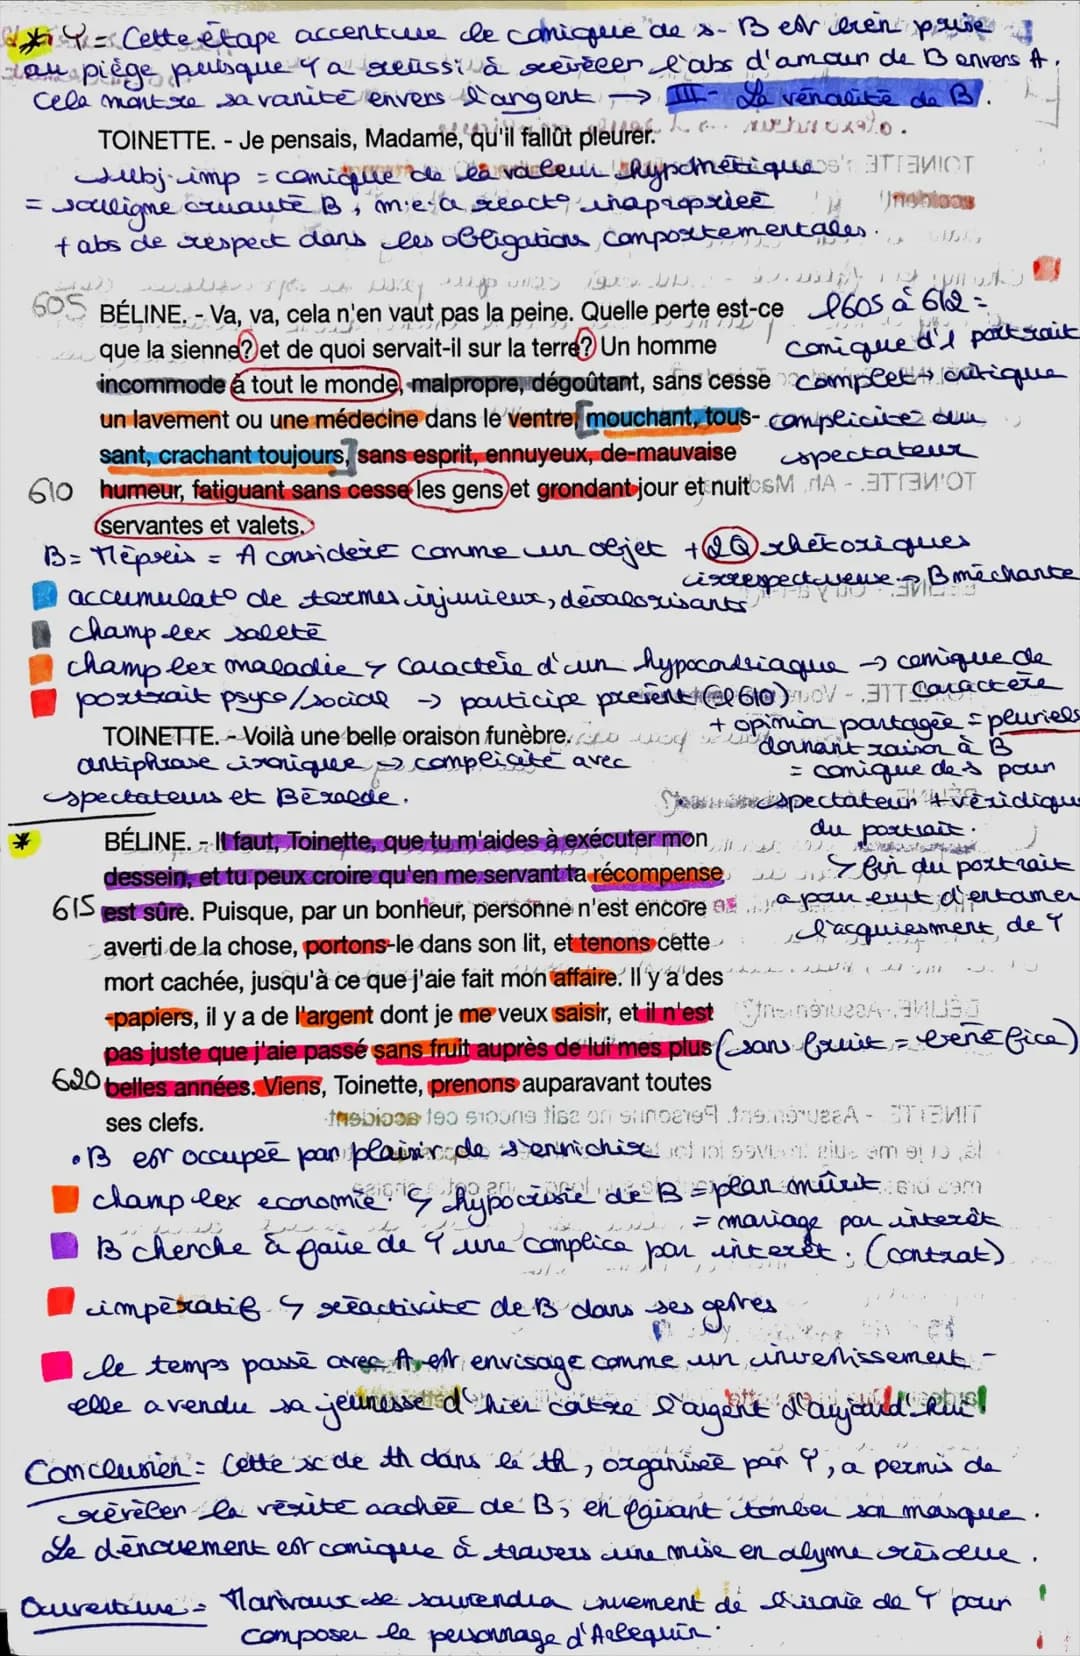 * T = Cette étape accentue le comique de s - B est bien prise
au piège puisque T a réussi à révéler l'abs d'amour de B envers A.
Cela montre sa vanité envers l'argent → III - La vénalité de B.
TOINETTE. - Je pensais, Madame, qu'il fallût pleurer.
subj. imp = comique de la valeur hypothétique
= souligne cruauté B, m.e.a réact° inapropriée
+ abs de respect dans les obligations comportementales.
605 BÉLINE. - Va, va, cela n'en vaut pas la peine. Quelle perte est-ce
que la sienne? et de quoi servait-il sur la terre? Un homme
incommode à tout le monde, malpropre, dégoûtant, sans cesse
un lavement ou une médecine dans le ventre, [mouchant, tous-
sant, crachant toujours,] sans esprit, ennuyeux, de mauvaise
610 humeur, fatiguant sans cesse les gens, et grondant jour et nuit
servantes et valets.
l605 à 612 =
comique d'1 portrait
complet → critique
complicité du
spectateur
B = Mépris = A considéré comme un objet + 2Q rhétoriques
irrespectueuse → B méchante
accumulat° de termes injurieux, dévalorisants
champ lex saleté
champ lex maladie ↳ caractère d'un hypocondriaque → comique de
caractère
portrait psyco/social → participe présent (l 610)
+ opinion partagée = pluriels
donnant raison à B
= comique de s pour
spectateur + véridique
du portrait.
↳ fin du portrait
a pour but d'entamer
l'acquiesment de T
TOINETTE. - Voilà une belle oraison funèbre.
antiphrase ironique → complicité avec
spectateurs et Béralde.
* BÉLINE. - Il faut, Toinette, que tu m'aides à exécuter mon
dessein, et tu peux croire qu'en me servant ta récompense
615 est sûre. Puisque, par un bonheur, personne n'est encore
averti de la chose, portons-le dans son lit, et tenons cette
mort cachée, jusqu'à ce que j'aie fait mon affaire. Il y a des
papiers, il y a de l'argent dont je me veux saisir, et il n'est
pas juste que j'aie passé sans fruit auprès de lui mes plus (sans fruit = bénéfice)
620 belles années. Viens, Toinette, prenons auparavant toutes
ses clefs.
• B est occupée par plaisir de s'enrichir
champ lex économie ↳ hypocrisie de B = plan mûrit
= mariage par intérêt
B cherche à faire de T une complice par intérêt. (contrat)
impératif ↳ réactivité de B dans ses gestes
le temps passé avec A est envisagé comme un investissement -
elle a vendu sa jeunesse d'hier contre l'argent d'aujourd'hui
Conclusion = Cette sc de th dans le th, organisée par T, a permis de
révéler la vérité cachée de B, en faisant tomber son masque.
Le dénouement est comique à travers une mise en abyme résolue.
Ouverture = Marivaux se souviendra de l'ironie de T pour
composer le personnage d'Arlequin.